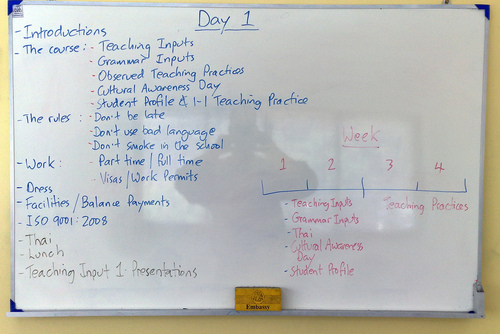 Day 1
- Introductions
- The course : - Teaching Inputs
- Grammar Inputs
- Observed Teaching Practices
- Cultural Awareness Day
- Student Profile & 1-1 Teaching Practice
- The rules : - Don't be late
- Don't use bad language
- Don't smoke in the school
- Work : - Part time / Full time
- Visas / Work Permits
- Dress
- Facilities / Balance Payments
- ISO 9001 : 2008
- Thai
- Lunch
- Teaching Input 1 - Presentations
Week
1 2 3 4
- Teaching Inputs
- Grammar Inputs
- Thai
- Cultural Awareness
Day
- Student Profile
Teaching Practices
Embassy